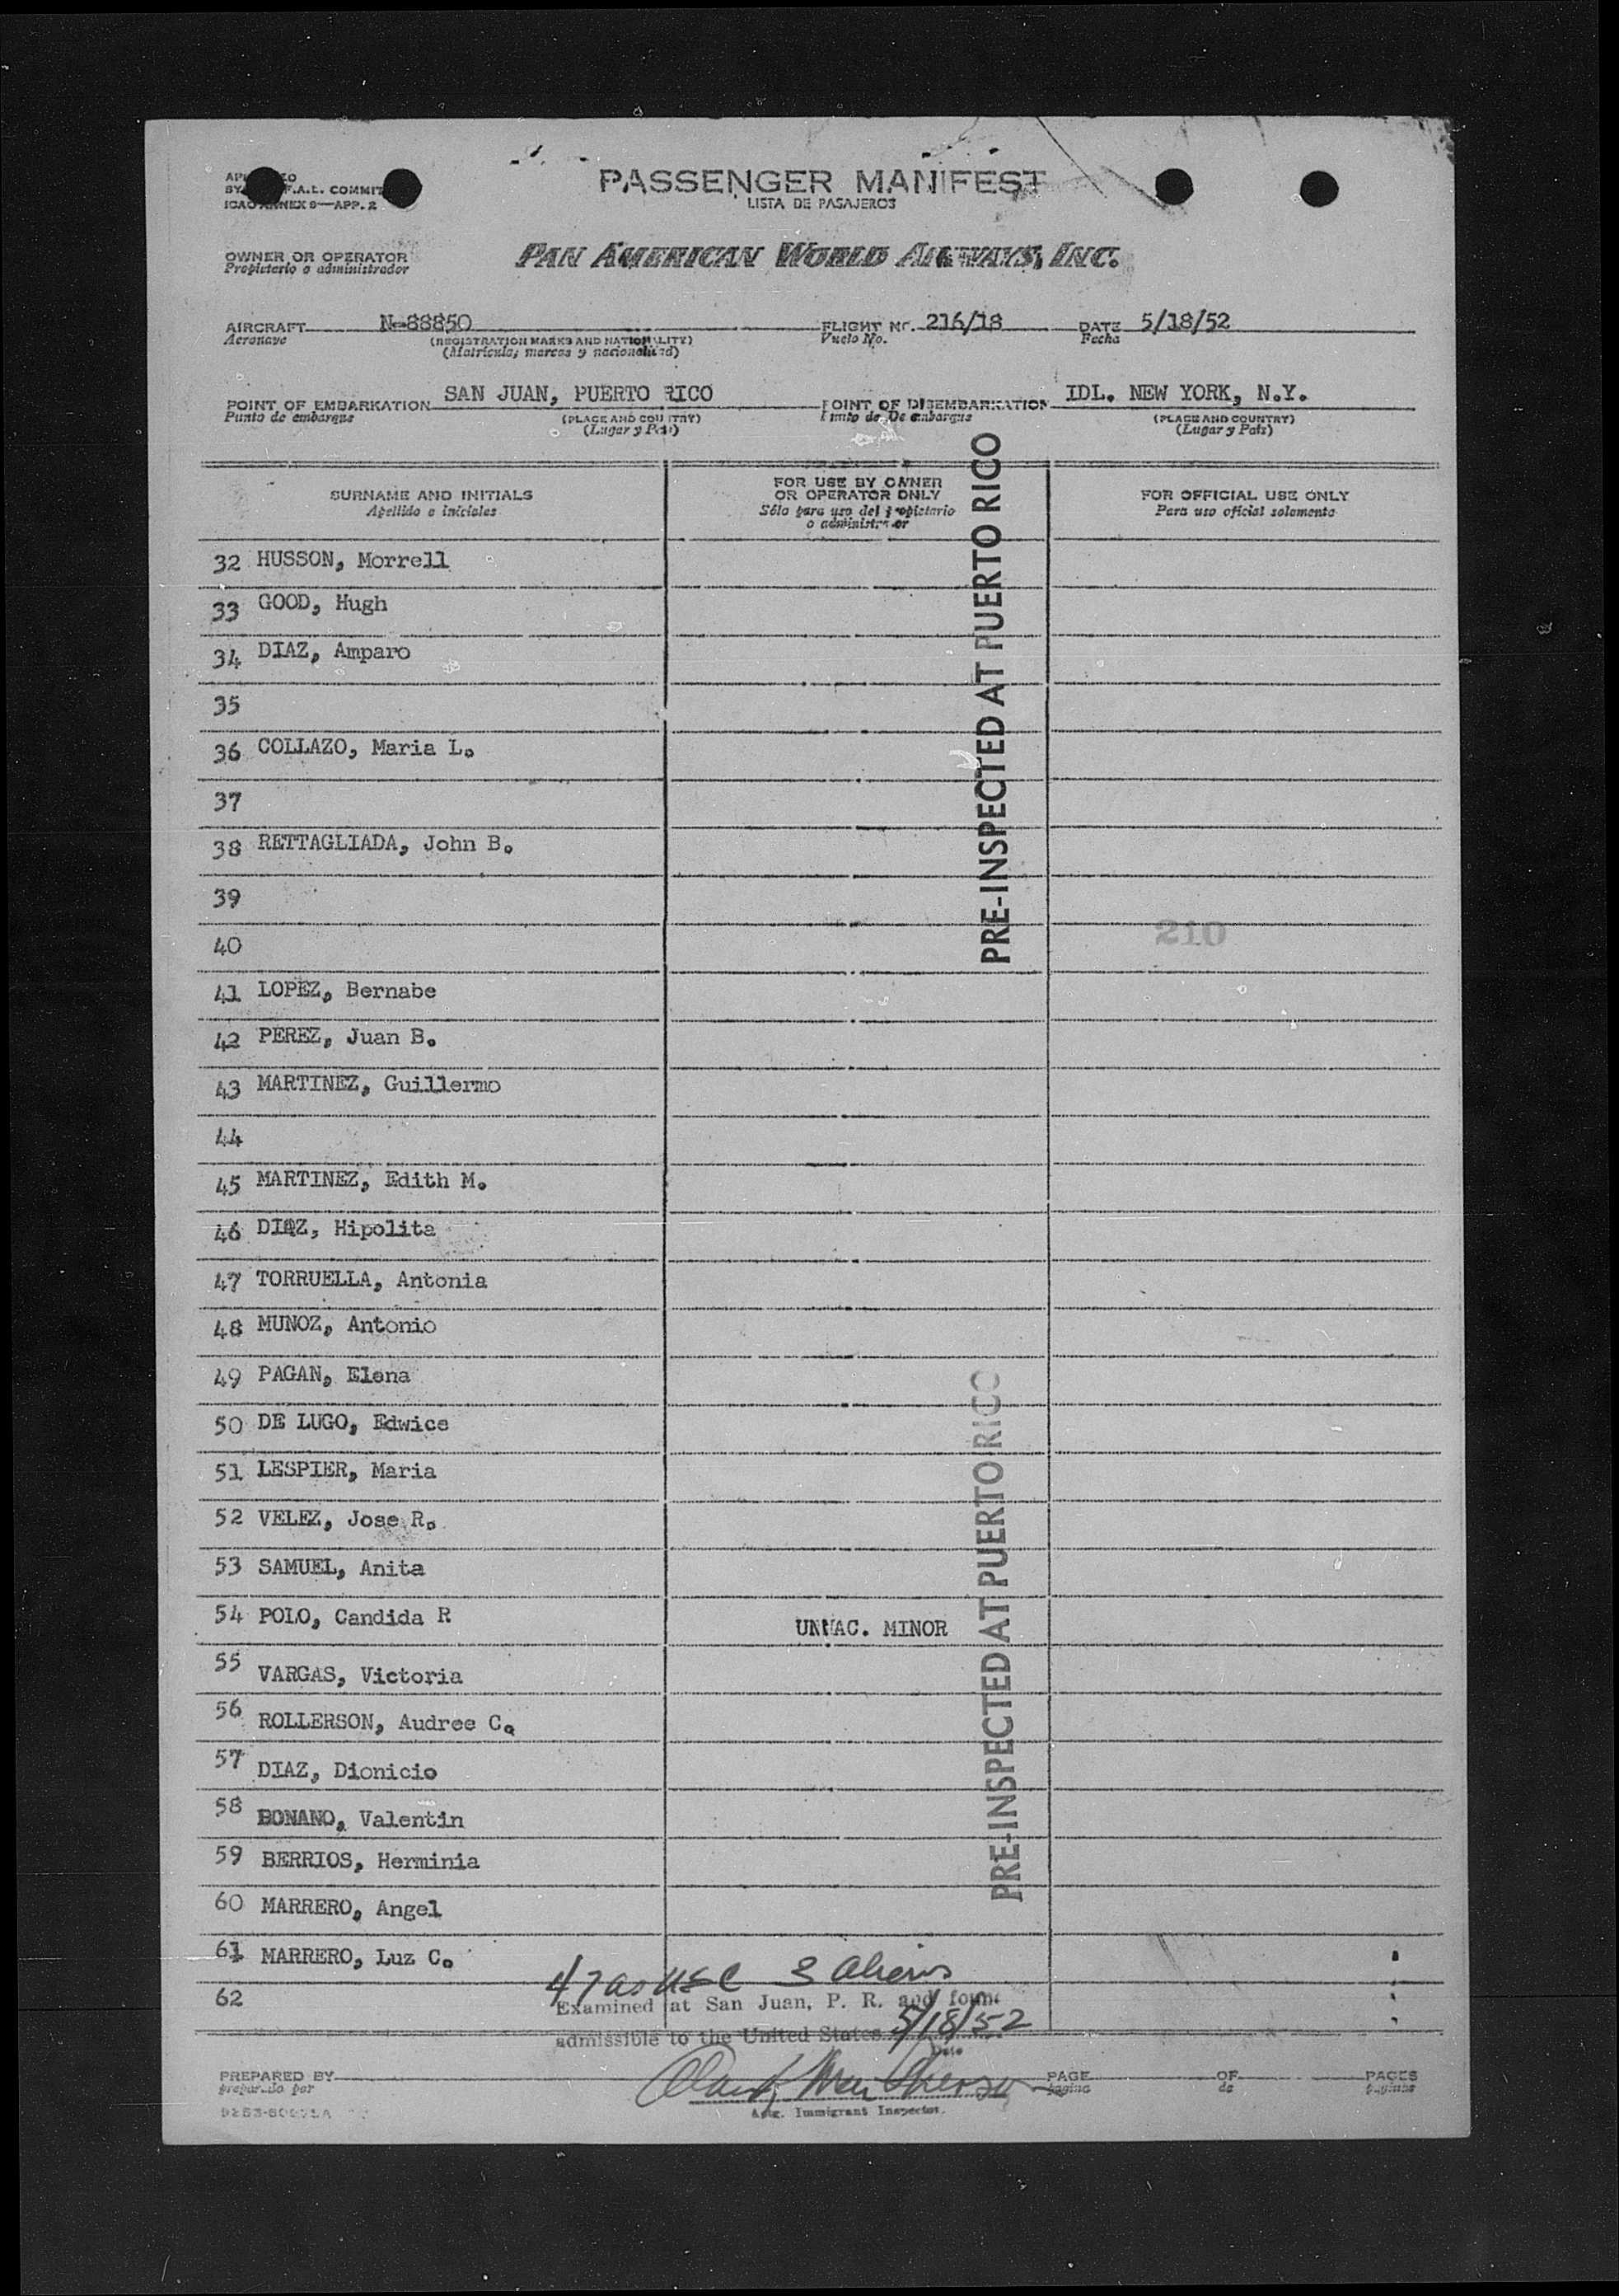 PASSENGER MANIFEST
LISTA DE PASAJEROS
F.A.L. COMMIT
ICAO ANNEX 9—APP. 2
OWNER OR OPERATOR
Propietario o administrador
PAN AMERICAN WORLD AIRWAYS, INC.
AIRCRAFT N-88850
Aeronave
(REGISTRATION MARKS AND NATIONALITY)
(Matrícula, marcas y nacionalidad)
FLIGHT NO. 216/18
Vuelo No.
DATE 5/18/52
Fecha
POINT OF EMBARKATION SAN JUAN, PUERTO RICO
Punto de embarque
(PLACE AND COUNTRY)
(Lugar y País)
POINT OF DISEMBARKATION IDL. NEW YORK, N.Y.
Punto de Desembarque
(PLACE AND COUNTRY)
(Lugar y País)
SURNAME AND INITIALS
Apellido e iniciales
FOR USE BY OWNER
OR OPERATOR ONLY
Sólo para uso del propietario
o administrador
FOR OFFICIAL USE ONLY
Para uso oficial solamente
32 HUSSON, Morrell
33 GOOD, Hugh
34 DIAZ, Amparo
35
36 COLLAZO, Maria L.
37
38 RETTAGLIADA, John B.
39
40
210
41 LOPEZ, Bernabe
42 PEREZ, Juan B.
43 MARTINEZ, Guillermo
44
45 MARTINEZ, Edith M.
46 DIAZ, Hipolita
47 TORRUELLA, Antonia
48 MUNOZ, Antonio
49 PAGAN, Elena
50 DE LUGO, Edwice
51 LESPIER, Maria
52 VELEZ, Jose R.
53 SAMUEL, Anita
54 POLO, Candida R UNNAC. MINOR
55 VARGAS, Victoria
56 ROLLERSON, Audree C.
57 DIAZ, Dionicio
58 BONANO, Valentin
59 BERRIOS, Herminia
60 MARRERO, Angel
61 MARRERO, Luz C.
62
PRE-INSPECTED AT PUERTO RICO
PRE-INSPECTED AT PUERTO RICO
47 as USC 3 Aliens
Examined at San Juan, P. R. and found
admissible to the United States 5/18/52
Date
Actg. Immigrant Inspector.
PREPARED BY
preparado por
PAGE OF PAGES
página de páginas